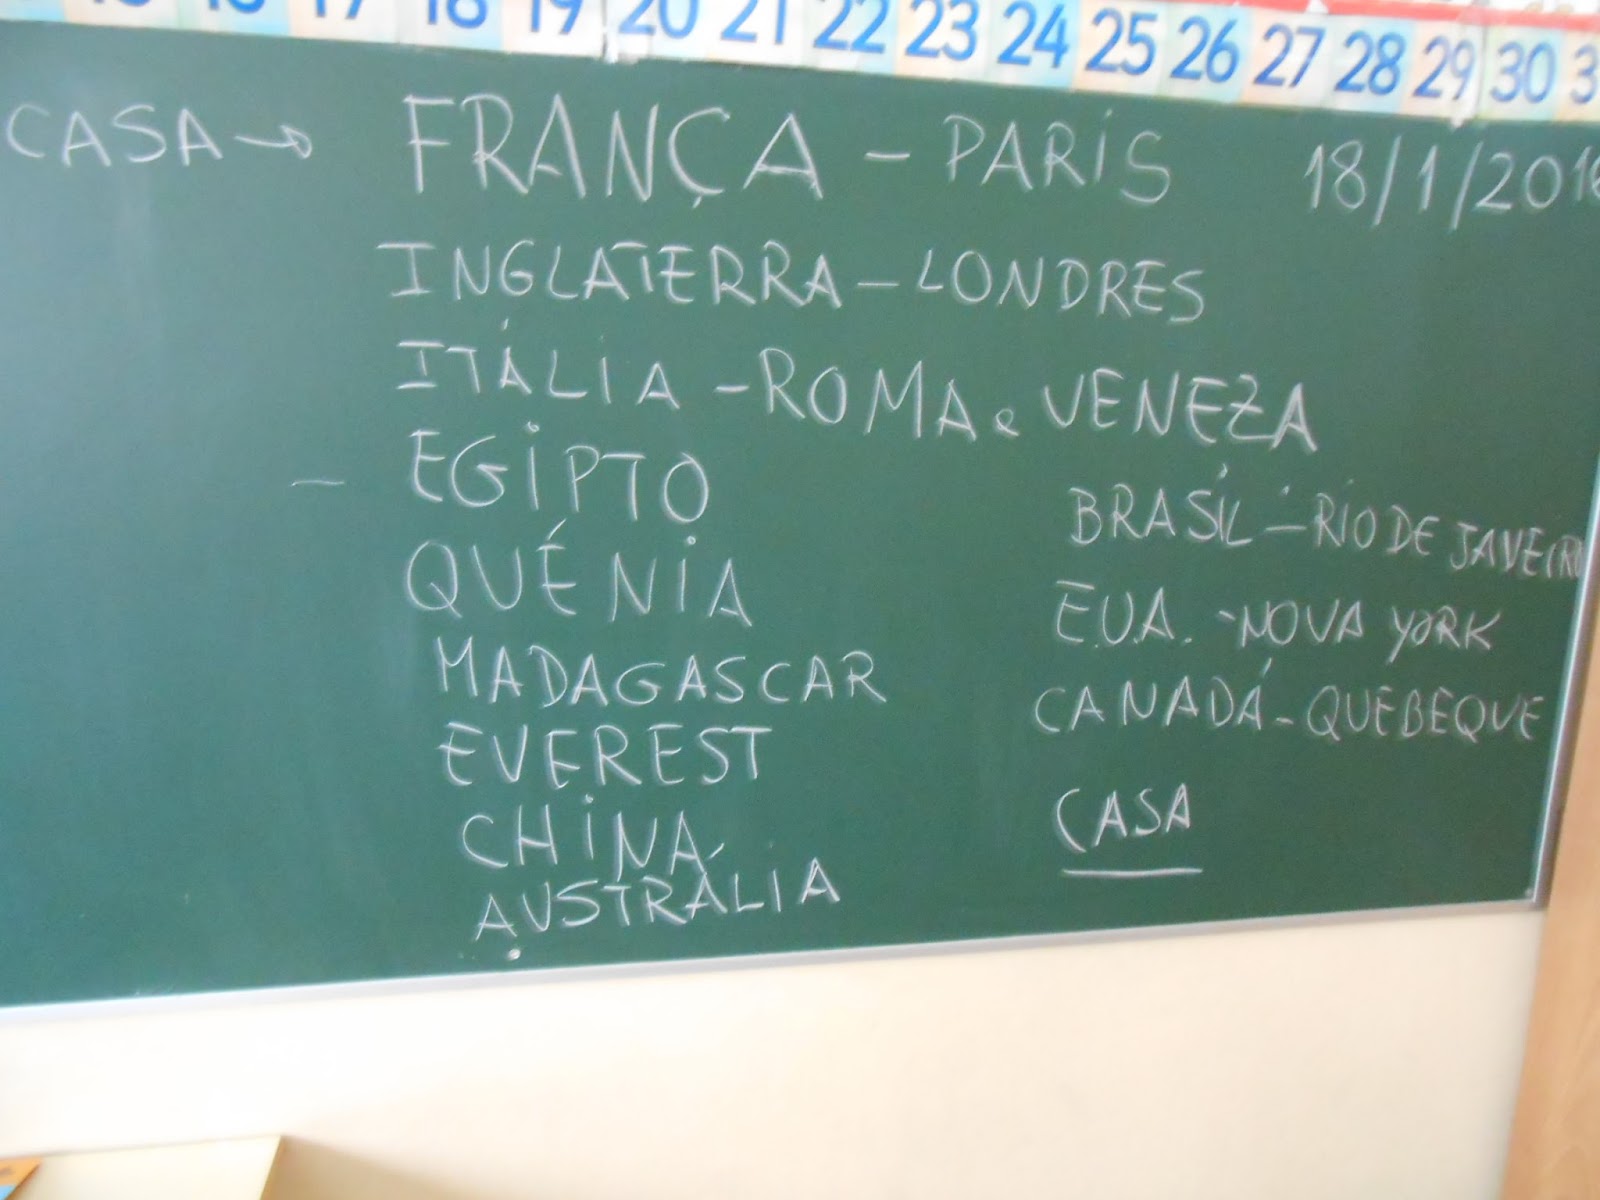 17 18 19 20 21 22 23 24 25 26 27 28 29 30
CASA → FRANÇA - PARIS 18/1/2016
INGLATERRA - LONDRES
ITÁLIA - ROMA e VENEZA
- EGIPTO
QUÉNIA
MADAGASCAR
EVEREST
CHINA
AUSTRÁLIA
BRASIL - RIO DE JANEIRO
E.U.A. - NOVA YORK
CANADÁ - QUEBEQUE
CASA